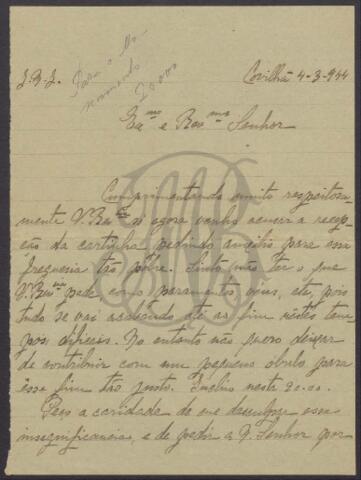 J.B.J.
Covilhã 4-3-944
Para o
20000
Ex.mo e Rev.mo Senhor
Cumprimentando muito respeitosa-
mente V. Rev.cia só agora venho acusar a recep-
ção da cartinha pedindo auxilio para essa
freguesia tão pobre. Sinto não ter o que
V. Rev.cia pede como paramentos, opas, etc, pois
tudo se vai acabando até ao fim nestes tem-
pos dificeis. No entanto não quero deixar
de contribuir com um pequeno obulo para
êsse fim tão justo. Incluo neste 20.00.
Peço a caridade de me desculpar essa
insignificancia, e de pedir a N. Senhor por